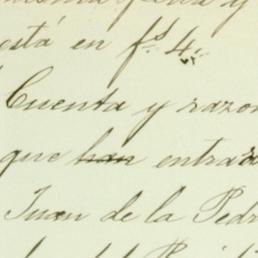 está en f.s 4.
Cuenta y razon
que han entrara
Juan de la Pedr